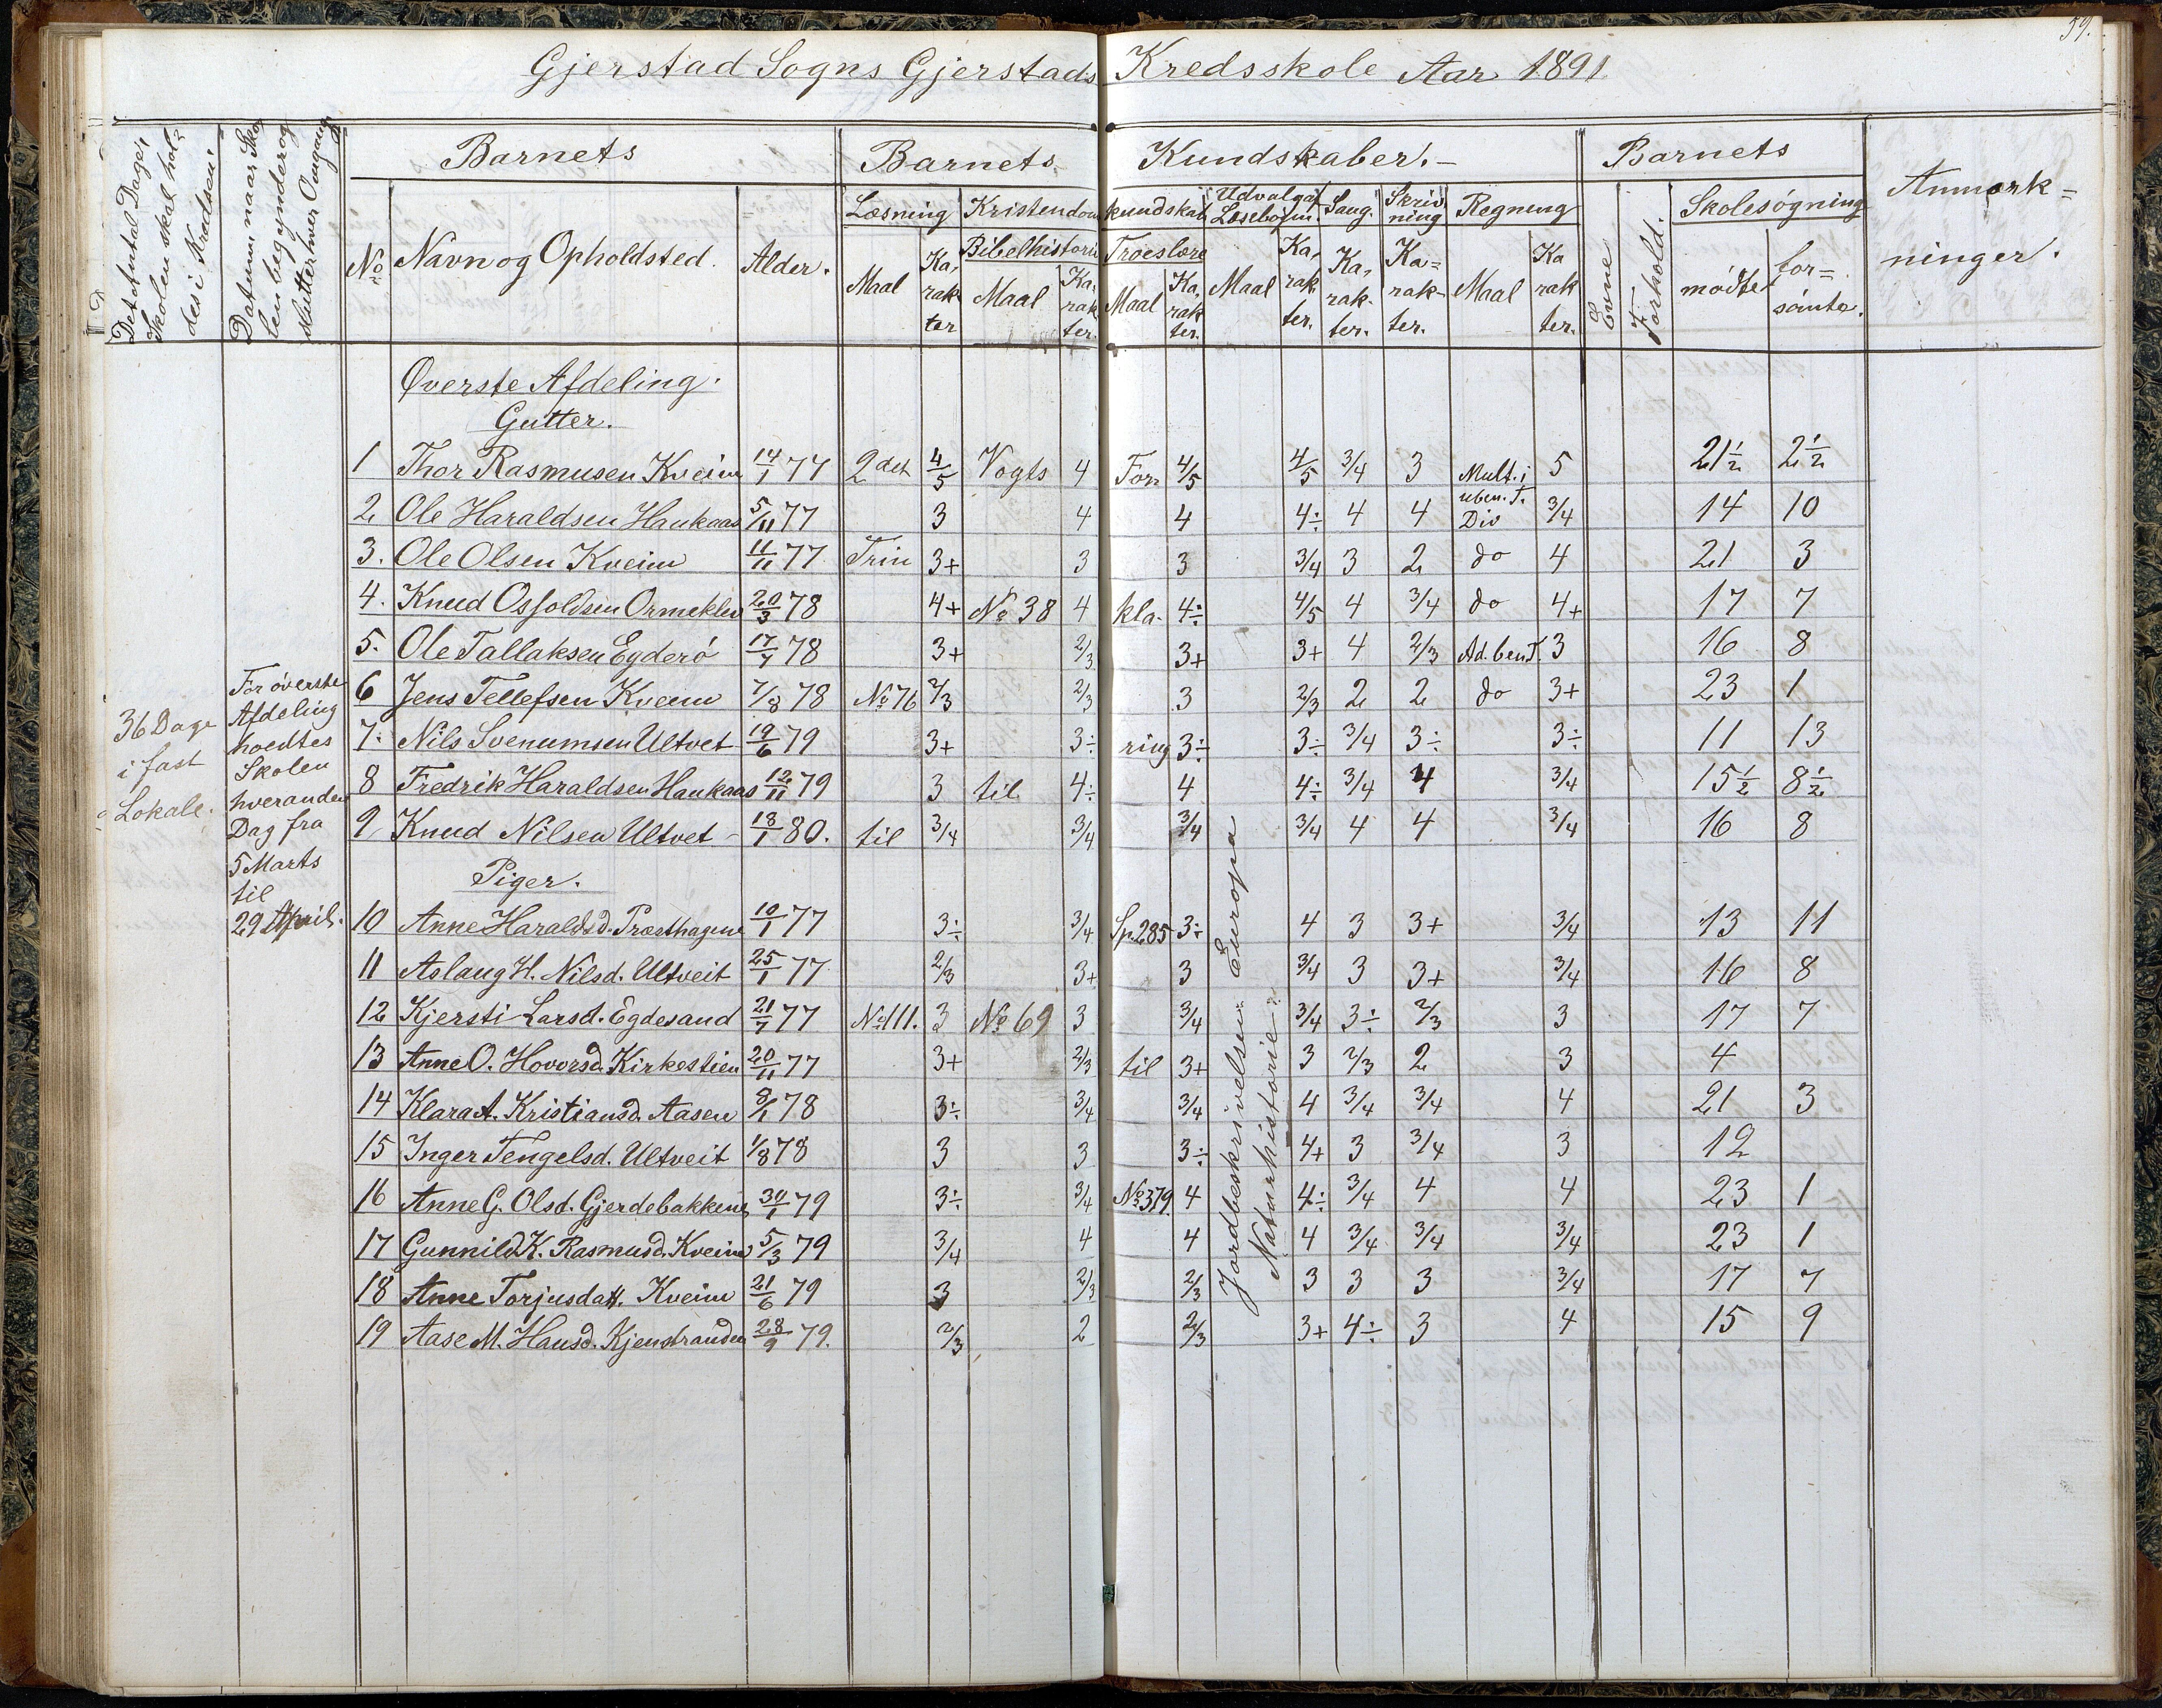 59.
Gjerstad Sogns Gjerstads Kredsskole Aar 1891
Det Antal Dage, Skolen skal holdes i Kredsen.
Datum, naar Skolen begynder og slutter hver Omgang
Barnets Barnets Kundskaber. Barnets Anmærk=
ninger.
No Navn og Opholdsted. Alder.
Læsning Kristendomskundskab Udvalgaf Læsebogen. Sang. Skrivning Regning Evne Forhold. Skolesøgning
Bibelhistorie Troeslære
Maal Karakter Maal Karakter. Maal Karakter. Maal Karakter. Karakter. Karakter. Maal Karakter. mødte forsömte.
Øverste Afdeling.
Gutter.
1 Thor Rasmusen Kveim 14/1 77 2det 4/5 Vogts 4 For 4/5 4/5 3/4 3 Mult. i 5 21½ 2½
2 Ole Haraldsen Haukaas 5/11 77 3 4 4 4÷ 4 4 uben. T. Div 3/4 14 10
3. Ole Olsen Kveim 11/11 77 Trin 3+ 3 3 3/4 3 2 do 4 21 3
4. Knud Osfoldsen Ormeklev 20/3 78 4+ No 38 4 kla- 4÷ 4/5 4 3/4 do 4+ 17 7
5. Ole Tallaksen Egderö 17/7 78 3+ 2/3 3+ 3+ 4 2/3 Ad. ben T. 3 16 8
6 Jens Tellefsen Kveim 7/8 78 No 76 2/3 2/3 3 2/3 2 2 do 3+ 23 1
7. Nils Svenumsen Ultvet 19/6 79 3+ 3÷ ring 3÷ 3÷ 3/4 3÷ 3÷ 11 13
8 Fredrik Haraldsen Haukaas 12/11 79 3 til 4÷ 4 4÷ 3/4 4 3/4 15½ 8½
9 Knud Nilsen Ultvet - 18/1 80. til 3/4 3/4 3/4 3/4 4 4 3/4 16 8
Piger.
10 Anne Haraldsd. Præsthagene 10/1 77 3÷ 3/4 Sp. 285 3÷ 4 3 3+ 3/4 13 11
11 Aslaug H. Nilsd. Ultveit 25/1 77 2/3 3+ 3 3/4 3 3+ 3/4 16 8
12 Kjersti Larsd. Egdesand 21/7 77 No 111. 3 No 69 3 3/4 3/4 3÷ 2/3 3 17 7
13 Anne O. Hovorsd. Kirkestien 20/11 77 3+ 2/3 til 3+ 3 2/3 2 3 4
14 Klara A. Kristiansd. Aasen 8/1 78 3÷ 3/4 3/4 4 3/4 3/4 4 21 3
15 Inger Tengelsd. Ultveit 1/8 78 3 3 3÷ 4+ 3 3/4 3 12
16 Anne G. Olsd. Gjerdebakkene 30/1 79 3÷ 3/4 No 379. 4 4÷ 3/4 4 4 23 1
17 Gunnild K. Rasmusd. Kveim 5/3 79 3/4 4 4 4 3/4 3/4 3/4 23 1
18 Anne Torjusdatt. Kveim 21/6 79 3 2/3 2/3 3 3 3 3/4 17 7
19 Aase M. Hansd. Kjenstranden 28/9 79. 2/3 2 2/3 3+ 4÷ 3 4 15 9
36 Dage
i fast
Lokale.
For överste
Afdeling
hoedtes
Skolen
hveranden
Dag fra
5 Marts
til
29 April.
Jordbeskrivelsen Europa
Naturhistorie